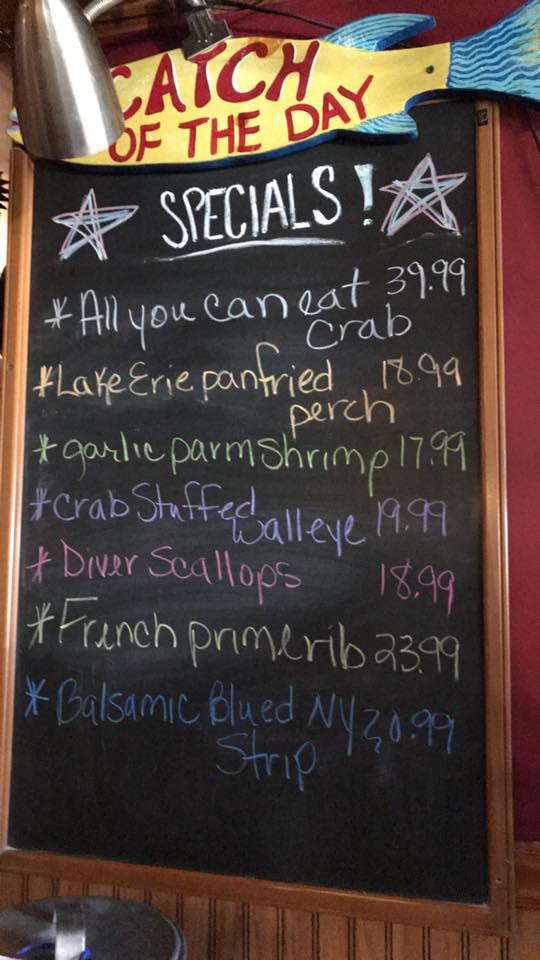 CATCH
OF THE DAY
SPECIALS!
* All you can eat 39.99
crab
* Lake Erie panfried 18.99
perch
* garlic parm shrimp 17.99
* Crab Stuffed
Walleye 19.99
* Diver Scallops 18.99
* French prime rib 23.99
* Balsamic Blued NY 20.99
Strip